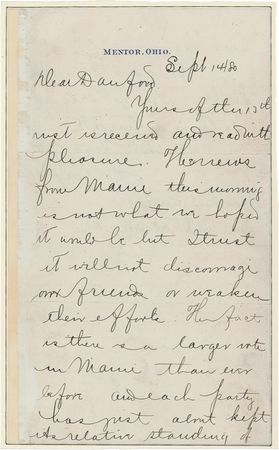 MENTOR, OHIO.
Sept 14 80
Dear Danford
Yours of the 13th
inst is received and read with
pleasure. The news
from Maine this morning
is not what we hoped
it would be but I trust
it will not discourage
our friends or weaken
their efforts. The fact
is there is a larger vote
in Maine than ever
before and each party
has just about kept
its relative standing of